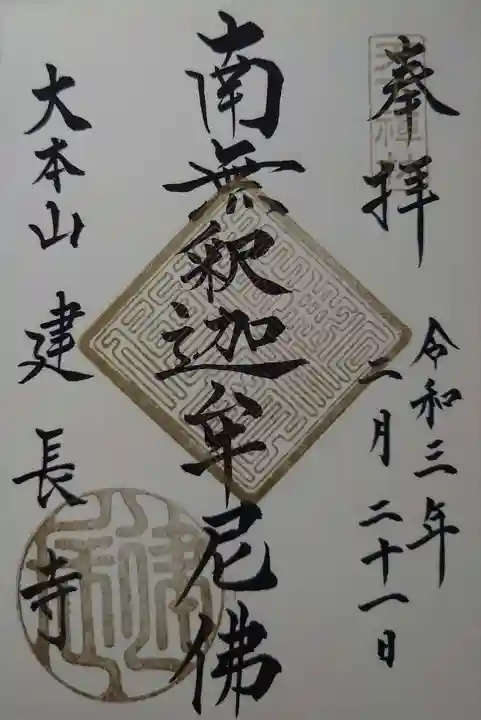 奉拝
令和三年
二月二十一日
南無釈迦牟尼佛
大本山建長寺